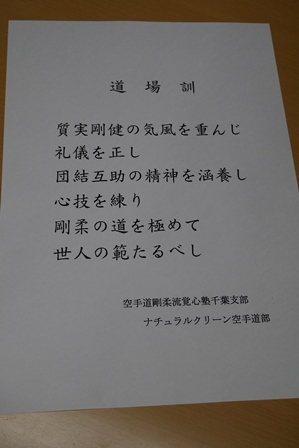 道場訓
質実剛健の気風を重んじ
礼儀を正し
団結互助の精神を涵養し
心技を練り
剛柔の道を極めて
世人の範たるべし
空手道剛柔流覚心塾千葉支部
ナチュラルクリーン空手道部